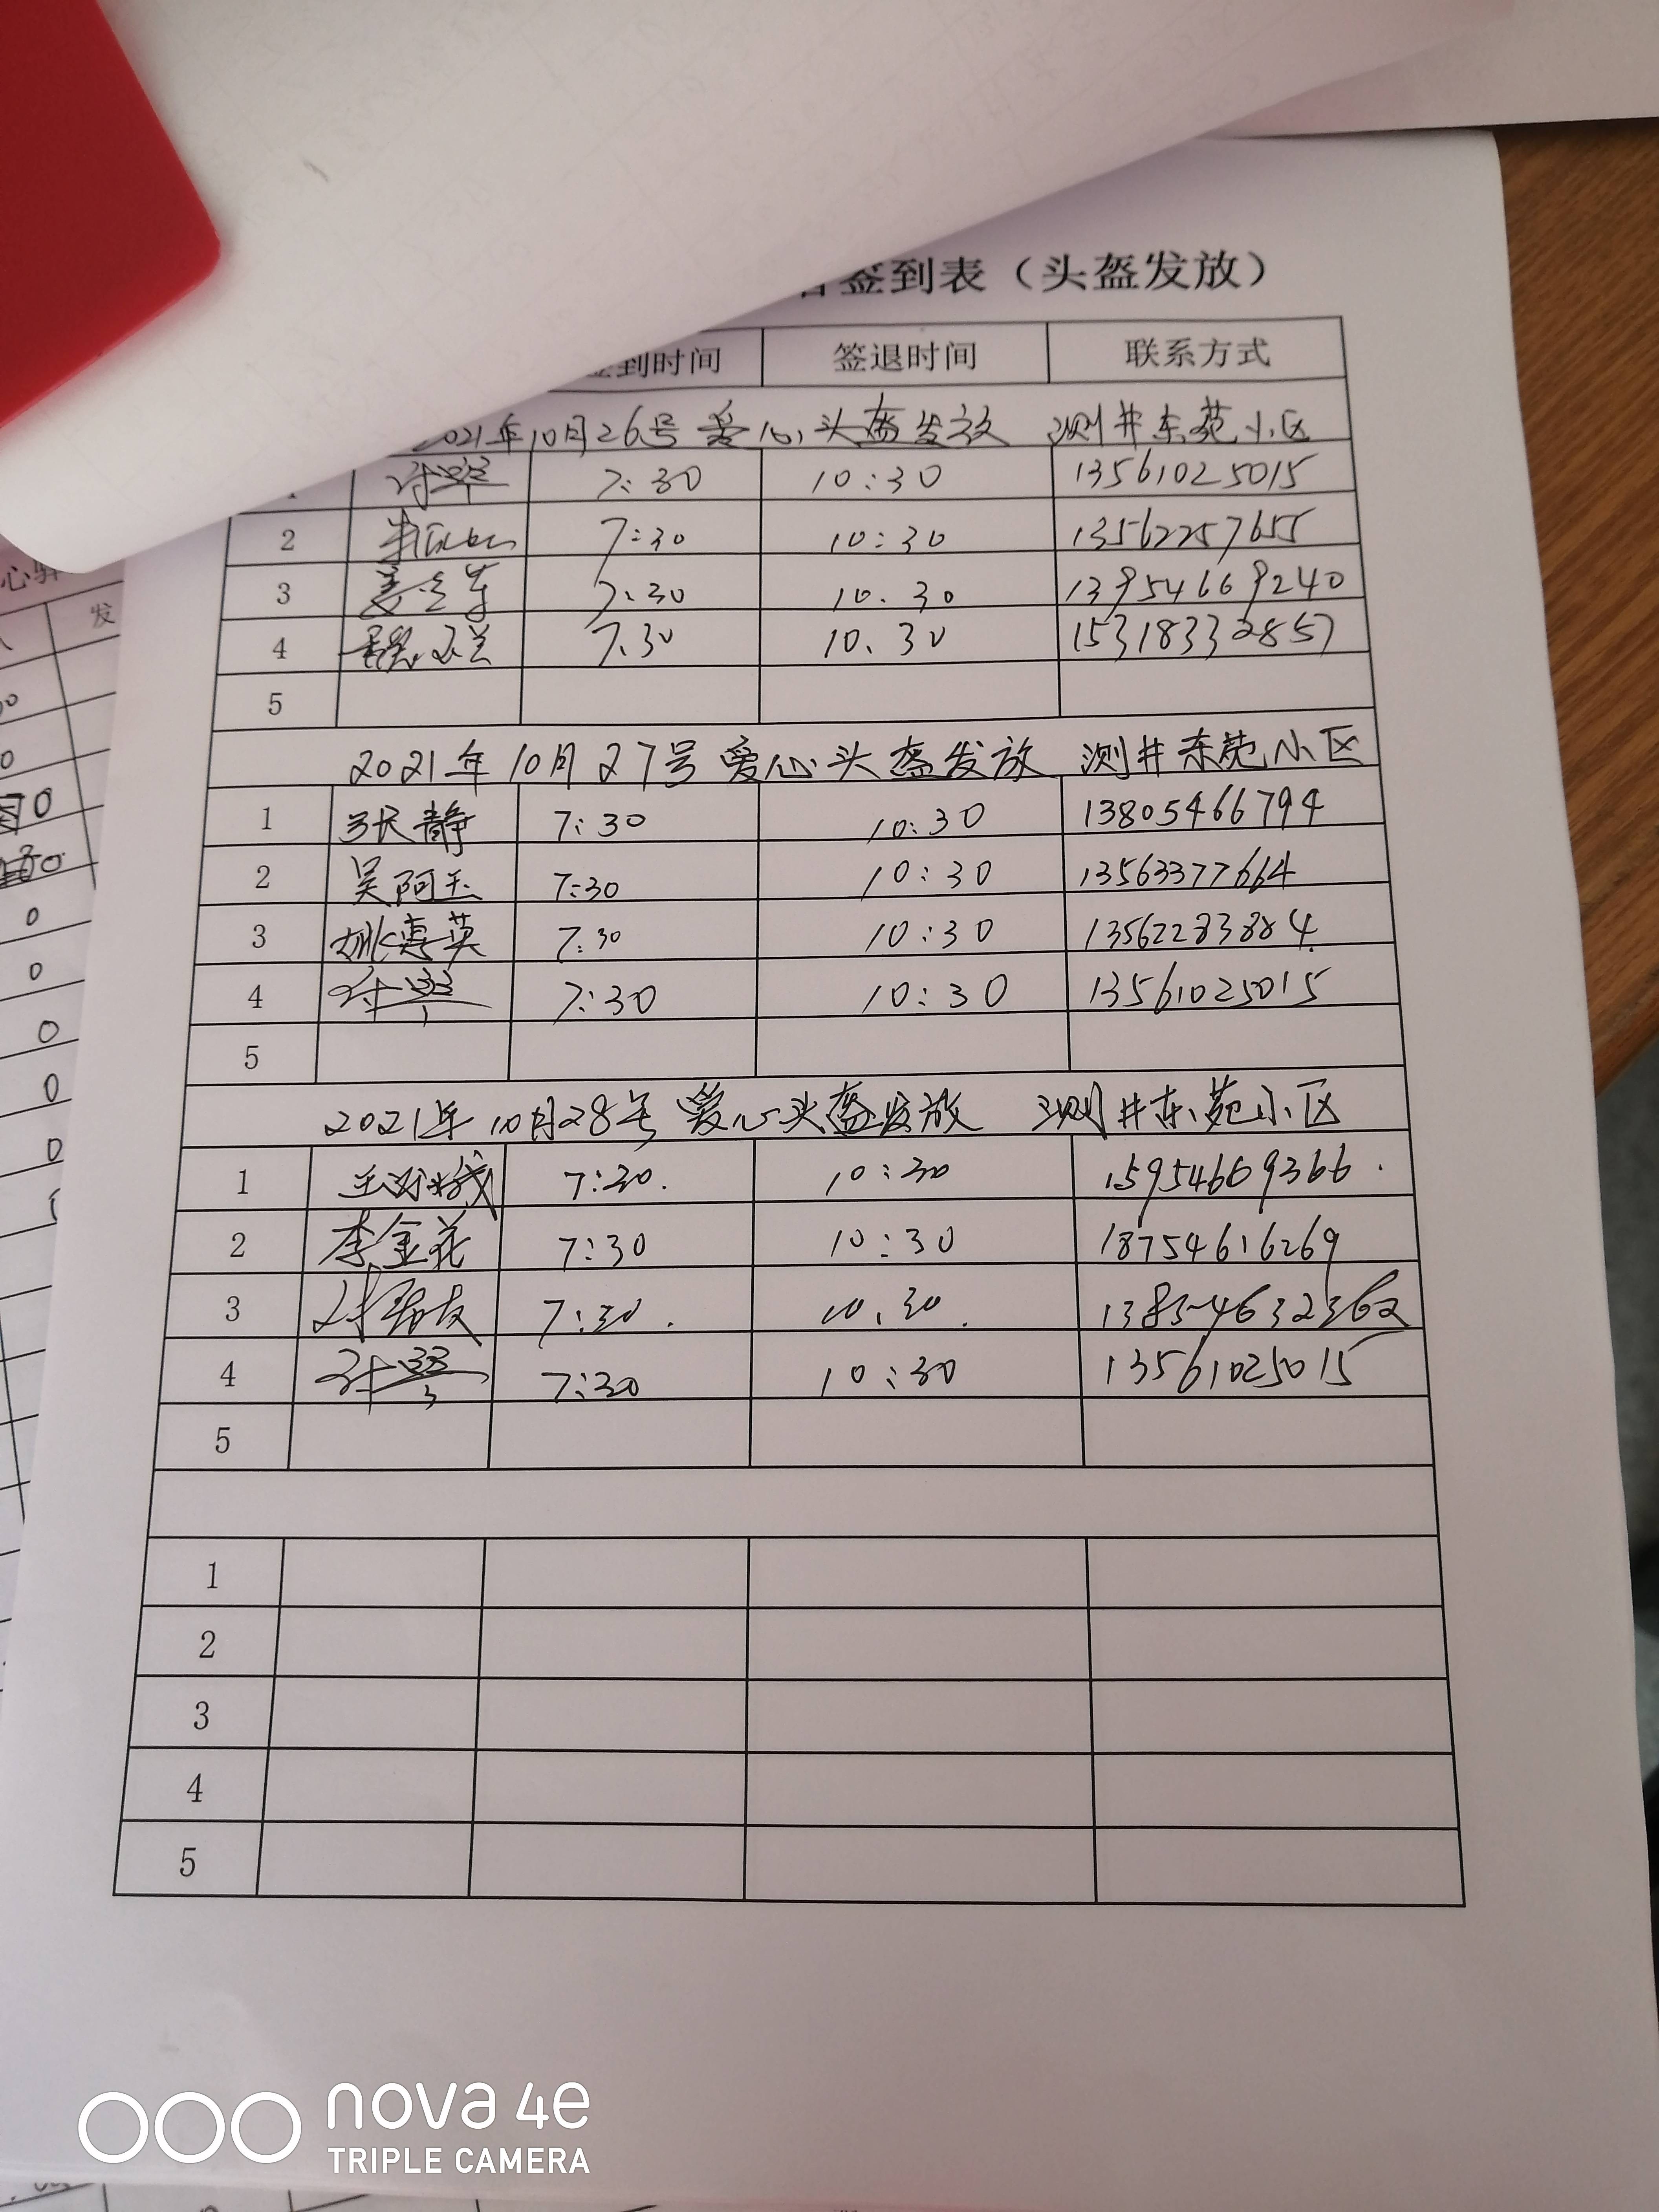 签到表（头盔发放）
到时间 签退时间 联系方式
2021年10月26号 爱心头盔发放 测井东苑小区
7:30 10:30 13561025015
2 7:30 10:30 13562257655
3 姜 7:30 10.30 13954669240
4 7.30 10.30 15318332857
5
2021年10月27号 爱心头盔发放 测井东苑小区
1 张静 7:30 10:30 13805466794
2 吴阿玉 7:30 10:30 13563377664
3 姚惠英 7:30 10:30 13562283884
4 7:30 10:30 13561025015
5
2021年10月28号 爱心头盔发放 测井东苑小区
1 7:30. 10:30 15954669366
2 李金花 7:30 10:30 18754616269
3 7:30. 10.30.
4 7:30 10:30 13561025015
5
1
2
3
4
5
发
nova 4e
TRIPLE CAMERA